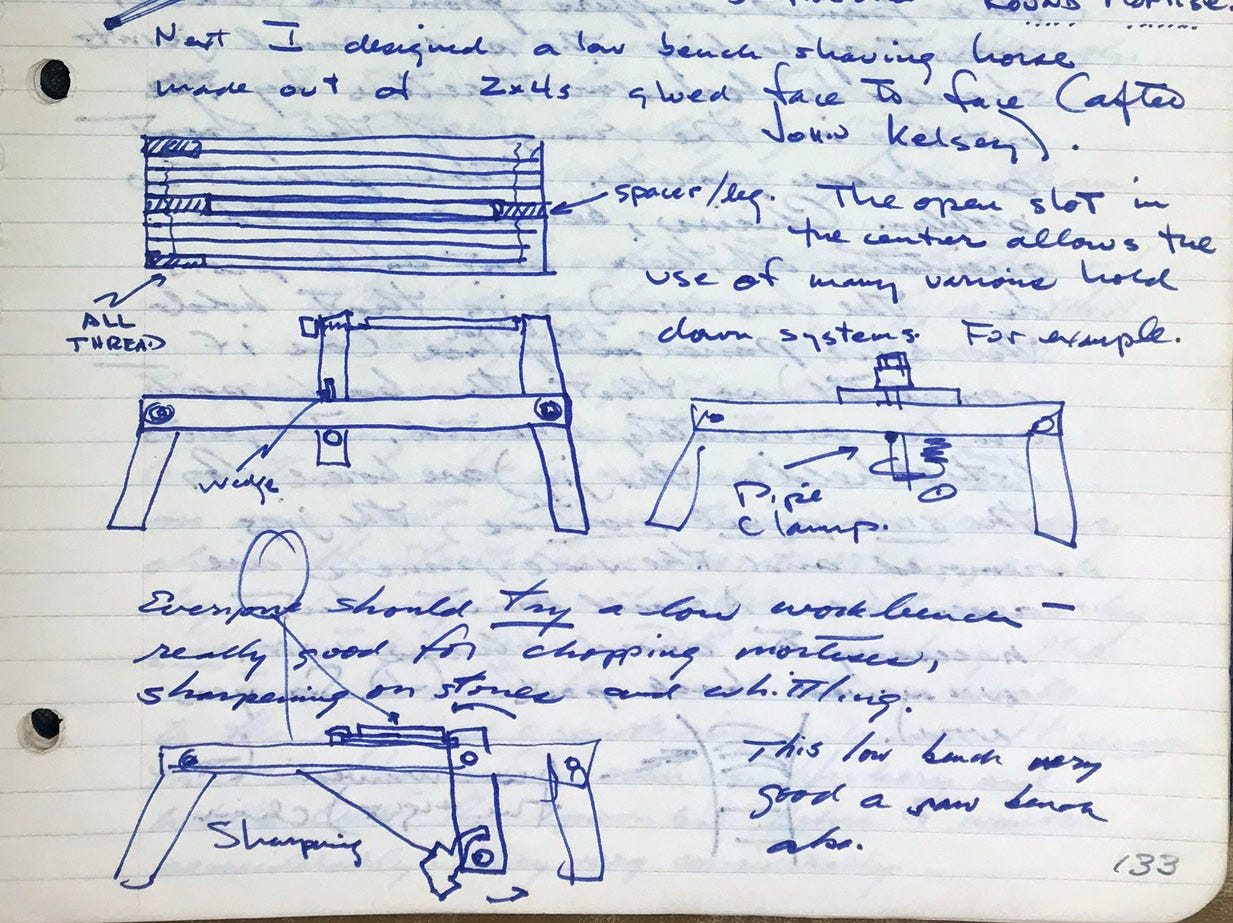 ROUND MORTISE.
Next I designed a low bench shaving horse
made out of 2x4s glued face to face (after
John Kelsey).
spacer/leg. The open slot in
the center allows the
use of many various hold
down systems. For example.
ALL
THREAD
wedge
Pipe
Clamp.
Everyone should try a low workbench –
really good for chopping mortises,
sharpening on stones and whittling.
This low bench very
good a saw bench
also.
Sharpening
133